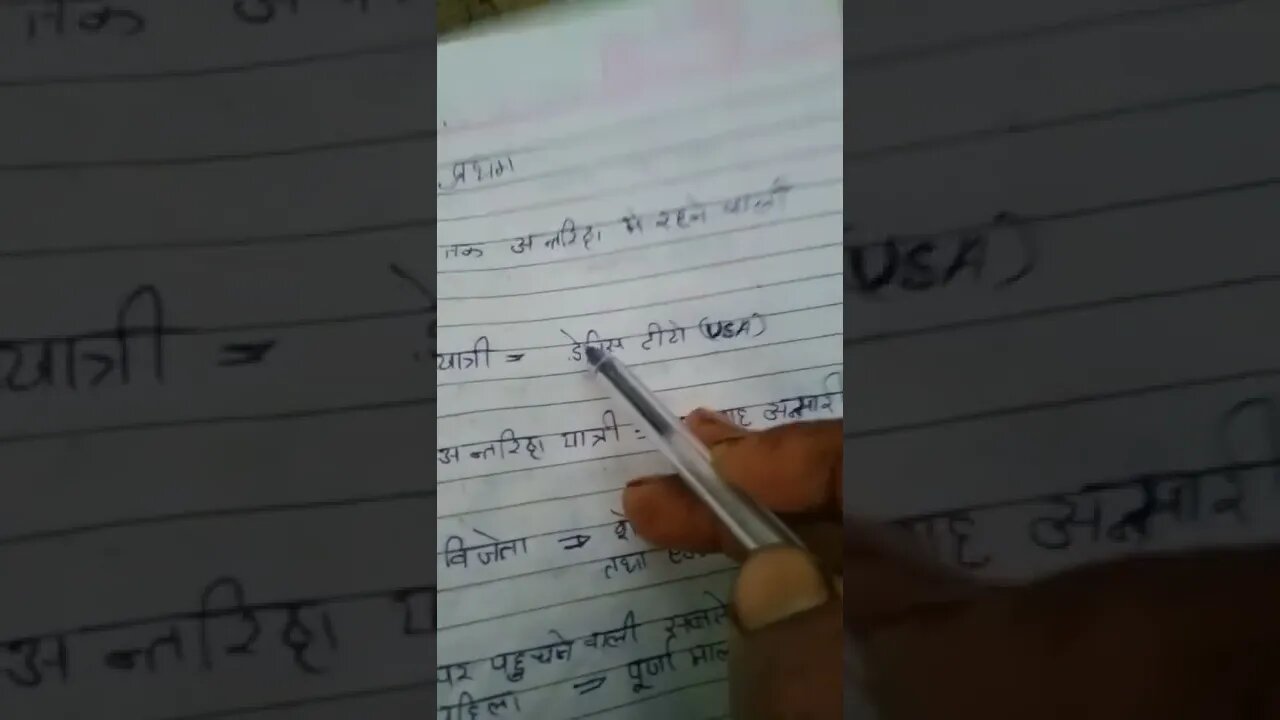 प्रथम
तक अन्तरिक्ष में रहने वाली
यात्री = डेनिस टीटो (USA)
अन्तरिक्ष यात्री = अन्सारी
विजेता ⇒
तथा
पर पहुचने वाली
महिला ⇒ पूर्णा